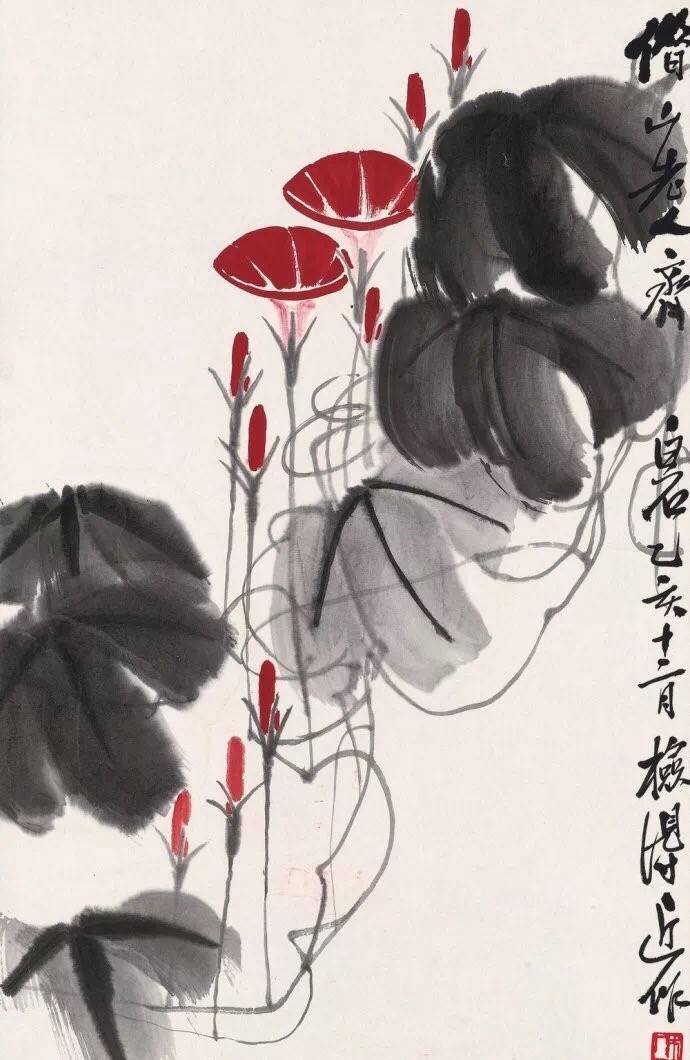 借山老人齊白石乙亥十二月檢得近作